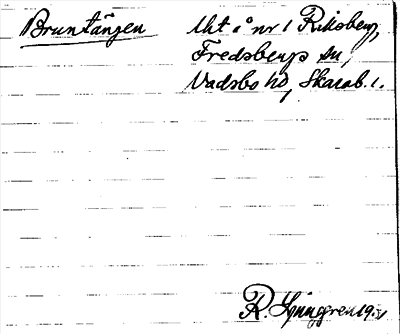 Bruntängen Uht å nr 1 Riksberg,
Fredsbergs sn,
Vadsbo hd, Skarab. l.
R. Ljunggren 19